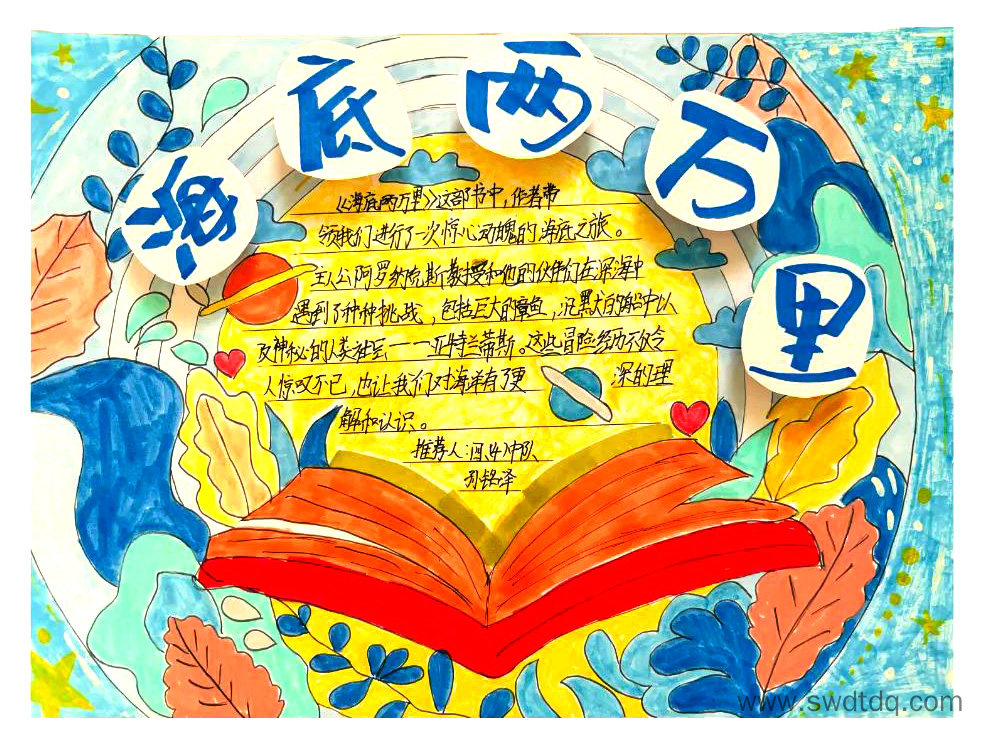 海底两万里
《海底两万里》这部书中，作者带
领我们进行了一次惊心动魄的海底之旅。
主人公阿罗纳克斯教授和他的伙伴们在深海中
遇到了种种挑战，包括巨大的章鱼，沉黑大的船中以
及神秘的人类社会——亚特兰蒂斯。这些冒险经历不仅令
人惊叹不已，也让我们对海洋有了更 深的理
解和认识。
推荐人：四、4中队
孙铭泽
www.swdtdq.com